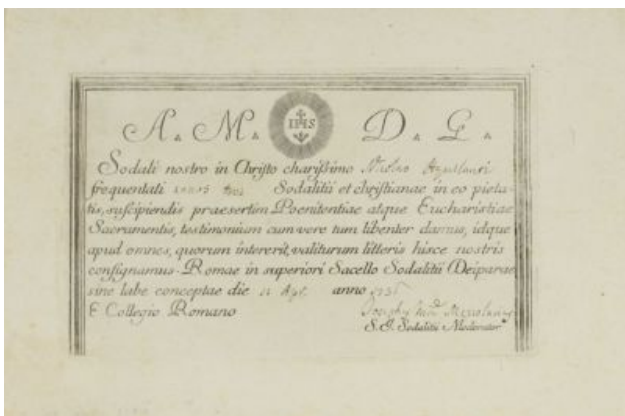 A. M. IHS D. G.
Sodali nostro in Christo charissimo
frequentati annos Sodalitii et christianae in eo pieta-
tis, suscipiendis praesertim Poenitentiae atque Eucharistiae
Sacramentis, testimonium cum vere tum libenter damus, idque
apud omnes, quorum intererit, valiturum litteris hisce nostris
consignamus. Romae in superiori Sacello Sodalitii Deiparae
sine labe conceptae die anno
E Collegio Romano
S. J. Sodalitii Moderator